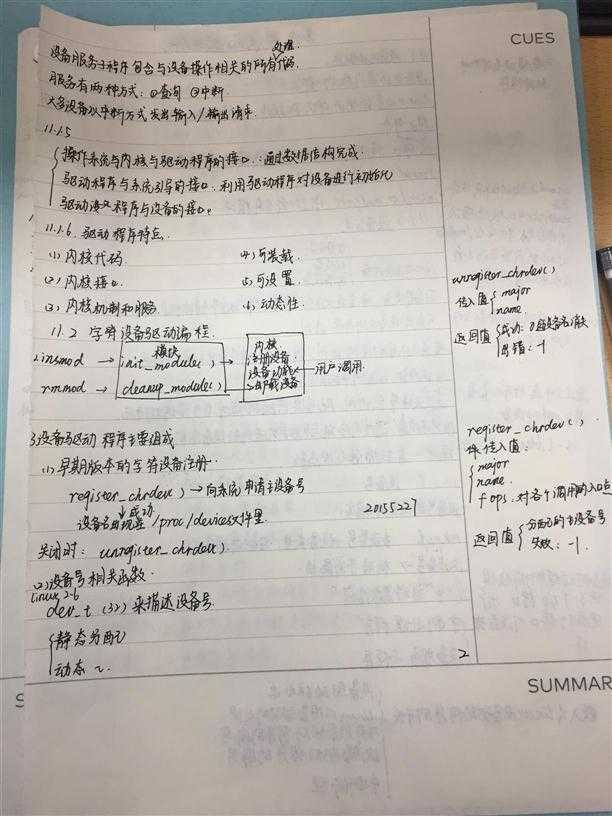 CUES
设备服务子程序包含与设备操作相关的所有处理代码.
服务有两种方式: ①查询 ②中断
大多设备以中断方式发出输入/输出请求
11.1.5
操作系统与内核与驱动程序的接口: 通过数据结构完成.
驱动程序与系统引导的接口. 利用驱动程序对设备进行初始化
驱动程序与设备的接口.
11.1.6. 驱动程序特点.
(1) 内核代码. (4) 可装载.
(2) 内核接口. (5) 可设置.
(3) 内核机制和服务 (6) 动态性
11.2 字符设备驱动编程.
模块 内核
insmod → init_module() → 注册设备
设备功能 ← 用户调用.
rmmod → cleanup_module() → 卸载设备
3.设备驱动程序主要组成
(1) 早期版本的字符设备注册.
register_chrdev() → 向系统申请主设备号
↓成功
设备名出现在 /proc/devices文件里.
20155227
关闭时: unregister_chrdev()
(2) 设备号相关函数.
Linux 2.6
dev_t (32) 来描述设备号.
静态分配
动态 ~.
2
unregister_chrdev()
传入值 major
name
返回值 成功: 0 设备名消失
出错: -1
register_chrdev(),
传入值:
major
name.
fops: 对各个调用的入口点
返回值 分配的主设备号
失败: -1.
SUMMAR